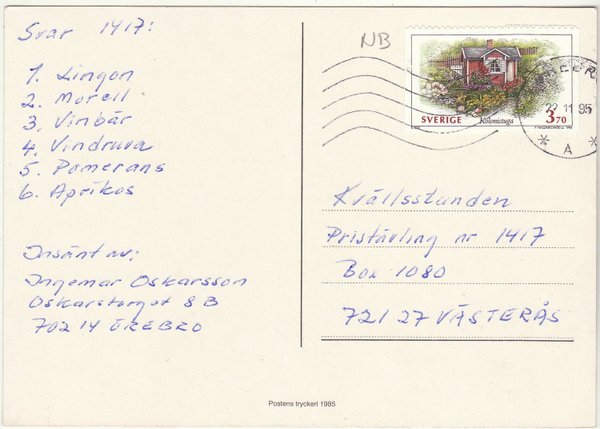 Svar 1417:
1. Lingon
2. Morell
3. Vinbär
4. Vindruva
5. Pomerans
6. Aprikos
Insänt av:
Ingemar Oskarsson
Oskarstorget 8 B
702 14 ÖREBRO
NB
SVERIGE
Kolonistuga
3 70
22 11 95
* A *
Kvällsstunden
Pristävling nr 1417
Box 1080
721 27 VÄSTERÅS
Postens tryckeri 1985